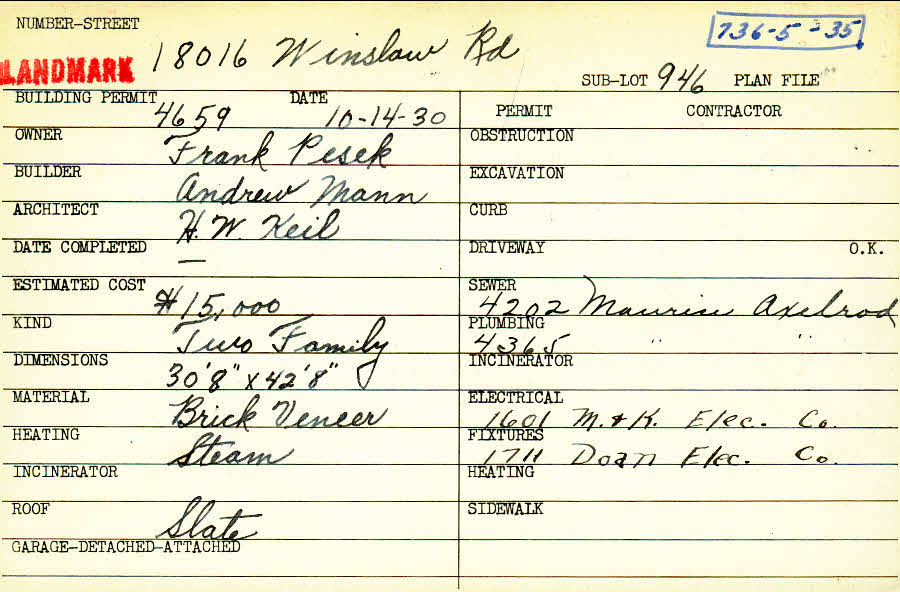 NUMBER-STREET 18016 Winslow Rd
736-5-35
LANDMARK
SUB-LOT 946 PLAN FILE
BUILDING PERMIT 4659 DATE 10-14-30
PERMIT CONTRACTOR
OWNER Frank Pesek
OBSTRUCTION
BUILDER Andrew Mann
EXCAVATION
ARCHITECT H. W. Keil
CURB
DATE COMPLETED —
DRIVEWAY O.K.
ESTIMATED COST $15,000
SEWER 4202 Maurice Axelrod
KIND Two Family
PLUMBING 4365 " "
DIMENSIONS 30'8" x 42'8"
INCINERATOR
MATERIAL Brick Veneer
ELECTRICAL 1601 M. & K. Elec. Co.
HEATING Steam
FIXTURES 1711 Doan Elec. Co.
INCINERATOR
HEATING
ROOF Slate
SIDEWALK
GARAGE-DETACHED-ATTACHED